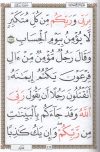 بِرَبِّى وَرَبِّكُم مِّن كُلِّ مُتَكَبِّرٍ
لَّا يُؤْمِنُ بِيَوْمِ الْحِسَابِ
وَقَالَ رَجُلٌ مُّؤْمِنٌ مِّنْ ءَالِ
فِرْعَوْنَ يَكْتُمُ إِيمَٰنَهُ
أَتَقْتُلُونَ رَجُلًا أَن يَقُولَ رَبِّىَ
اللَّهُ وَقَدْ جَاءَكُم بِالْبَيِّنَٰتِ
مِن رَّبِّكُمْ وَإِن يَكُ كَٰذِبًا